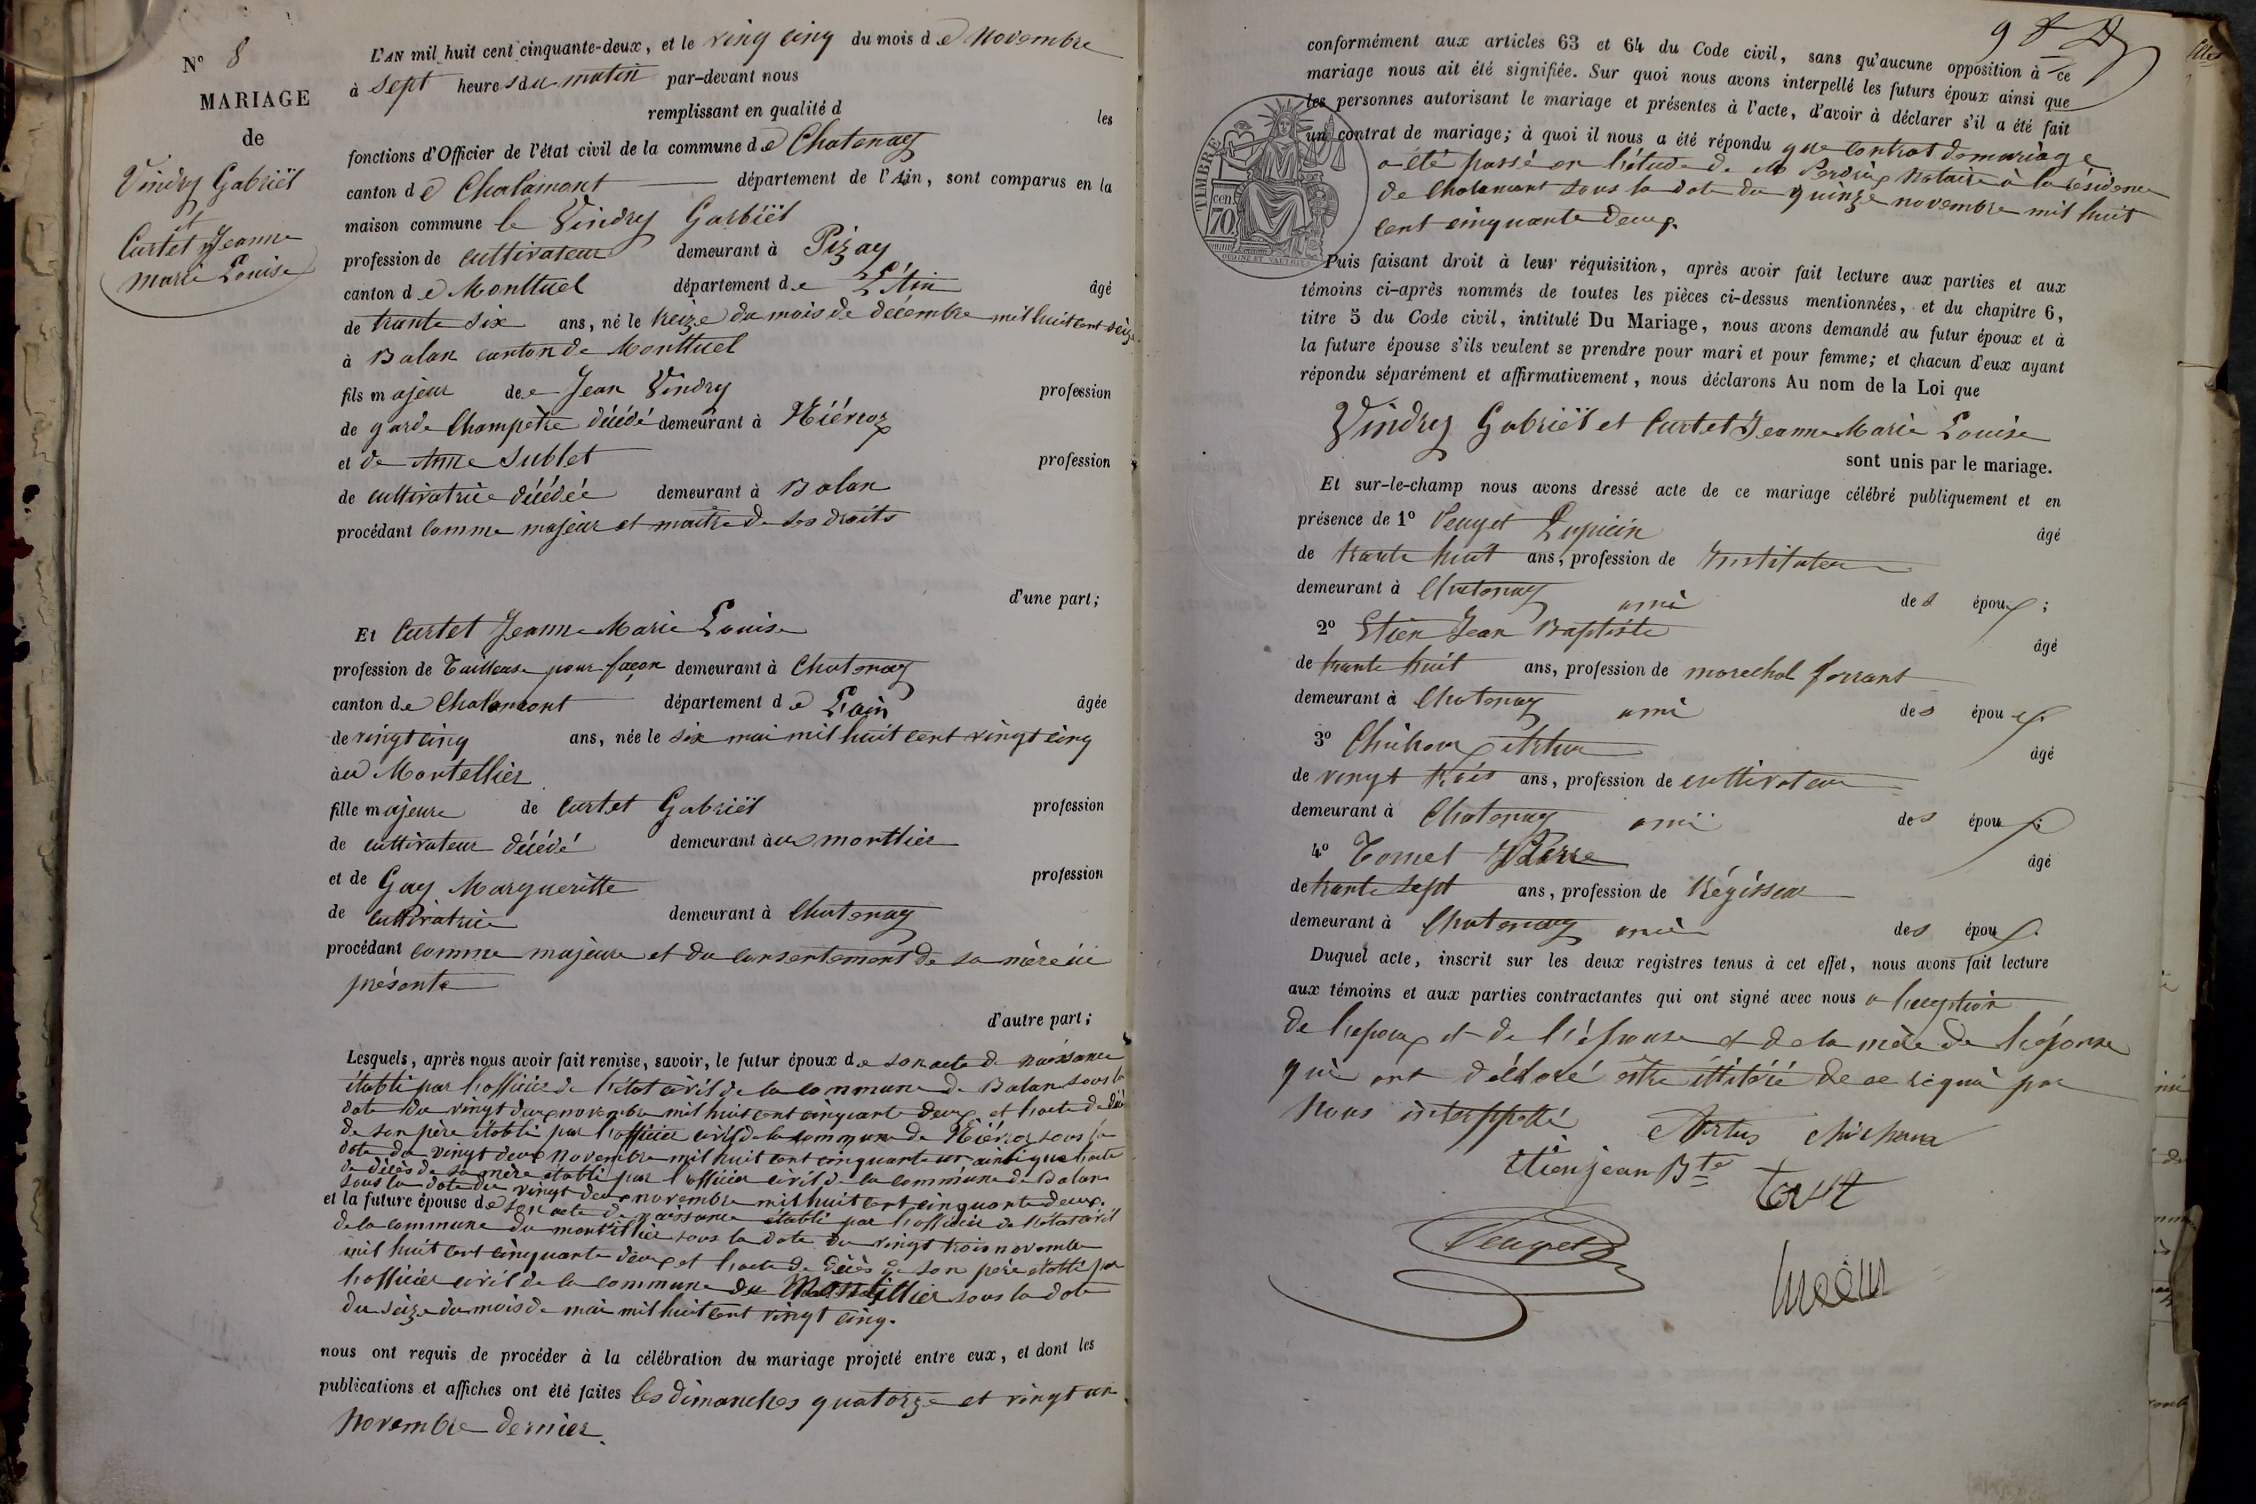 N° 8
MARIAGE
de
Vindry Gabriël
et
Curtet Jeanne
marie Louise
L'AN mil huit cent cinquante-deux, et le vingt cinq du mois de Novembre
à sept heures du matin par-devant nous
remplissant en qualité d les
fonctions d'Officier de l'état civil de la commune de Chatenay
canton de Chalamont département de l'Ain, sont comparus en la
maison commune le Vindry Garbiël
profession de cultivateur demeurant à Pizay
canton de Montluel département de L'Ain âgé
de trante six ans, né le treize du mois de décembre mil huit cent seize
à Balan canton de Montluel
fils majeur de Jean Vindry profession
de garde Champètre décédé demeurant à Niévroz
et de Anne Sublet profession
de cultivatrice décédée demeurant à Balan
procédant comme majeur et maitre de ses droits
d'une part;
Et Curtet Jeanne Marie Louise
profession de Tailleuse pour façon demeurant à Chatenay
canton de Chalamont département de L'ain âgée
de vingt cinq ans, née le six mai mil huit cent vingt cinq
au Montellier
fille majeure de Curtet Gabriël profession
de cultivateur décédé demeurant au montlier
et de Gay Margueritte profession
de cultivatrice demeurant à Chatenay
procédant comme majeure et du consentement de sa mère ici
présente
d'autre part;
Lesquels, après nous avoir fait remise, savoir, le futur époux de son acte de naissance
établi par l'officier de l'état civil de la commune de Balan sous la
date du vingt deux novembre mil huit cent cinquante deux et l'acte de
de son père établi par l'officier civil de la commune de Niévroz sous la
date du vingt deux novembre mil huit cent cinquante ainsi que l'acte
de décès de sa mère établi par l'officier civil de la commune de Balan
sous la date du vingt deux novembre mil huit cent cinquante deux.
et la future épouse de son acte de naissance établi par l'officier de l'état civil
de la commune du montellier sous la date du vingt trois novembre
mil huit cent cinquante deux et l'acte de décès de son père établi par
l'officier civil de la commune du Montellier sous la date
du seize du mois de mai mil huit cent vingt cinq.
nous ont requis de procéder à la célébration du mariage projeté entre eux, et dont les
publications et affiches ont été faites les dimanches quatorze et vingt un
Novembre dernier.
9
conformément aux articles 63 et 64 du Code civil, sans qu'aucune opposition à ce
mariage nous ait été signifiée. Sur quoi nous avons interpellé les futurs époux ainsi que
les personnes autorisant le mariage et présentes à l'acte, d'avoir à déclarer s'il a été fait
un contrat de mariage; à quoi il nous a été répondu que contrat de mariage
a été passé en l'étude de Me Perdrix Notaire à la résidence
de Chalamont sous la date du quinze novembre mil huit
cent cinquante deux.
TIMBRE
70 cen.
Puis faisant droit à leur réquisition, après avoir fait lecture aux parties et aux
témoins ci-après nommés de toutes les pièces ci-dessus mentionnées, et du chapitre 6,
titre 5 du Code civil, intitulé Du Mariage, nous avons demandé au futur époux et à
la future épouse s'ils veulent se prendre pour mari et pour femme; et chacun d'eux ayant
répondu séparément et affirmativement, nous déclarons Au nom de la Loi que
Vindry Gabriël et Curtet Jeanne Marie Louise
sont unis par le mariage.
Et sur-le-champ nous avons dressé acte de ce mariage célébré publiquement et en
présence de 1° Peuget Lupicin âgé
de trante huit ans, profession de Instituteur
demeurant à Chatenay ami des époux;
2° Etien Jean Baptiste âgé
de trante huit ans, profession de marechal ferrant
demeurant à Chatenay ami des époux.
3° âgé
de vingt trois ans, profession de cultivateur
demeurant à Chatenay ami des époux;
4° Tomet Pierre âgé
de trante sept ans, profession de Régisseur
demeurant à Chatenay ami des époux.
Duquel acte, inscrit sur les deux registres tenus à cet effet, nous avons fait lecture
aux témoins et aux parties contractantes qui ont signé avec nous a l'exeption
de l'epoux et de l'épouse et de la mère de l'épouse
qui ont déclaré être illitéré de ce requi par
Nous interppellé Artus
Etien jean Bte
Peuget